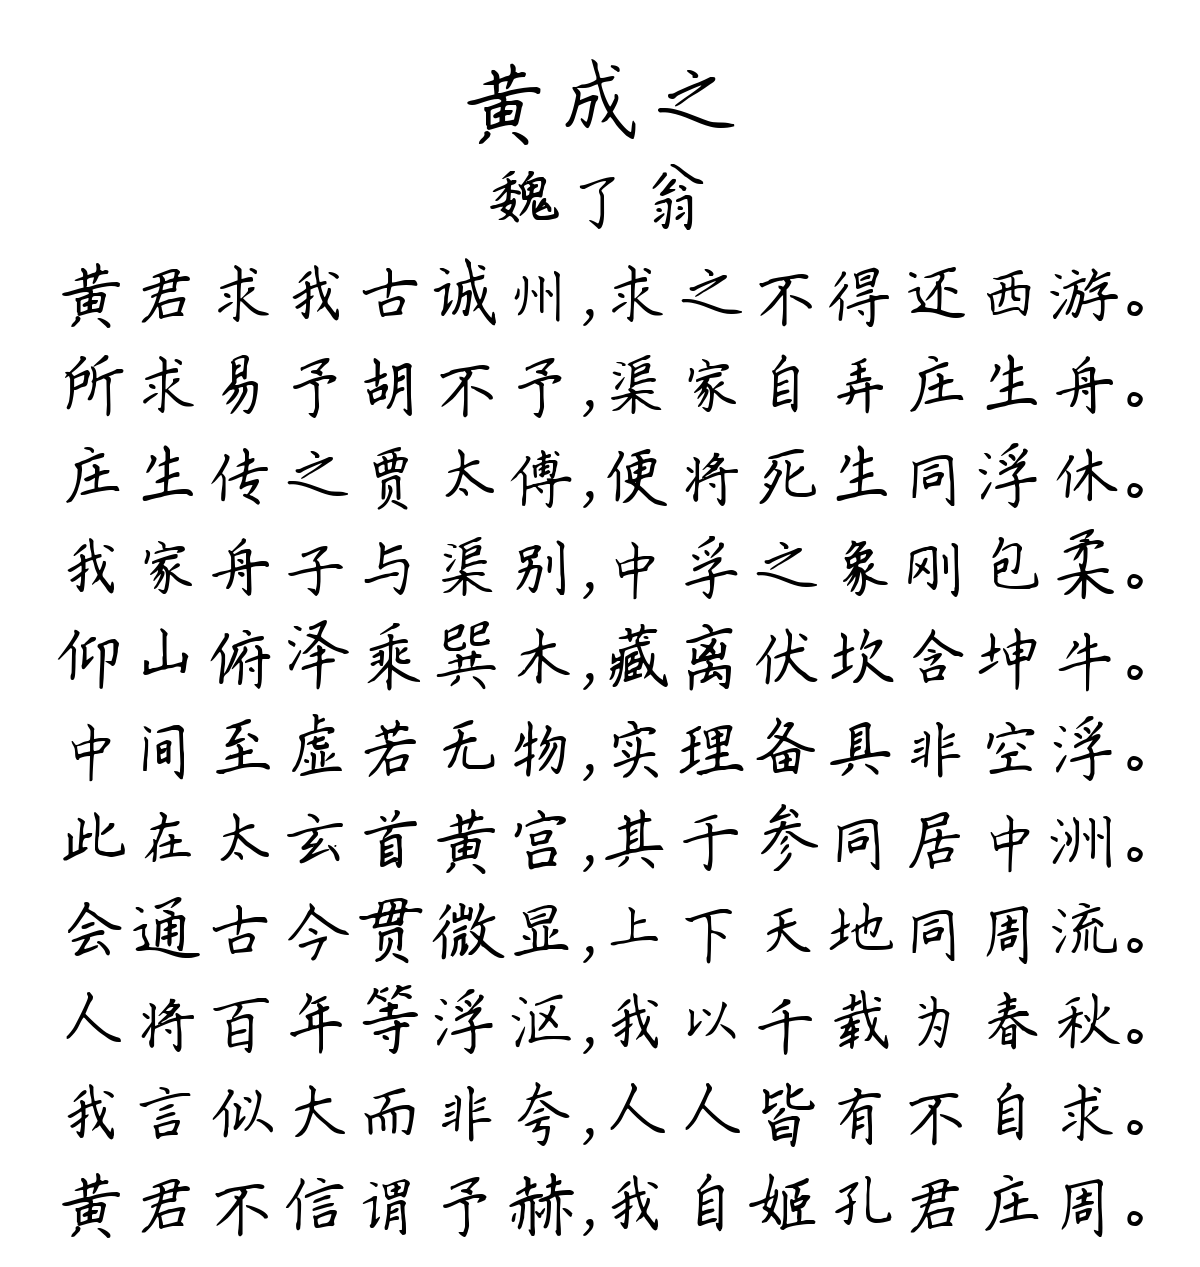 黄成之
魏了翁
黄君求我古诚州,求之不得还西游。
所求易予胡不予,渠家自弄庄生舟。
庄生传之贾太傅,便将死生同浮休。
我家舟子与渠别,中孚之象刚包柔。
仰山俯泽乘巽木,藏离伏坎含坤牛。
中间至虚若无物,实理备具非空浮。
此在太玄首黄宫,其于参同居中洲。
会通古今贯微显,上下天地同周流。
人将百年等浮沤,我以千载为春秋。
我言似大而非夸,人人皆有不自求。
黄君不信谓予赫,我自姬孔君庄周。